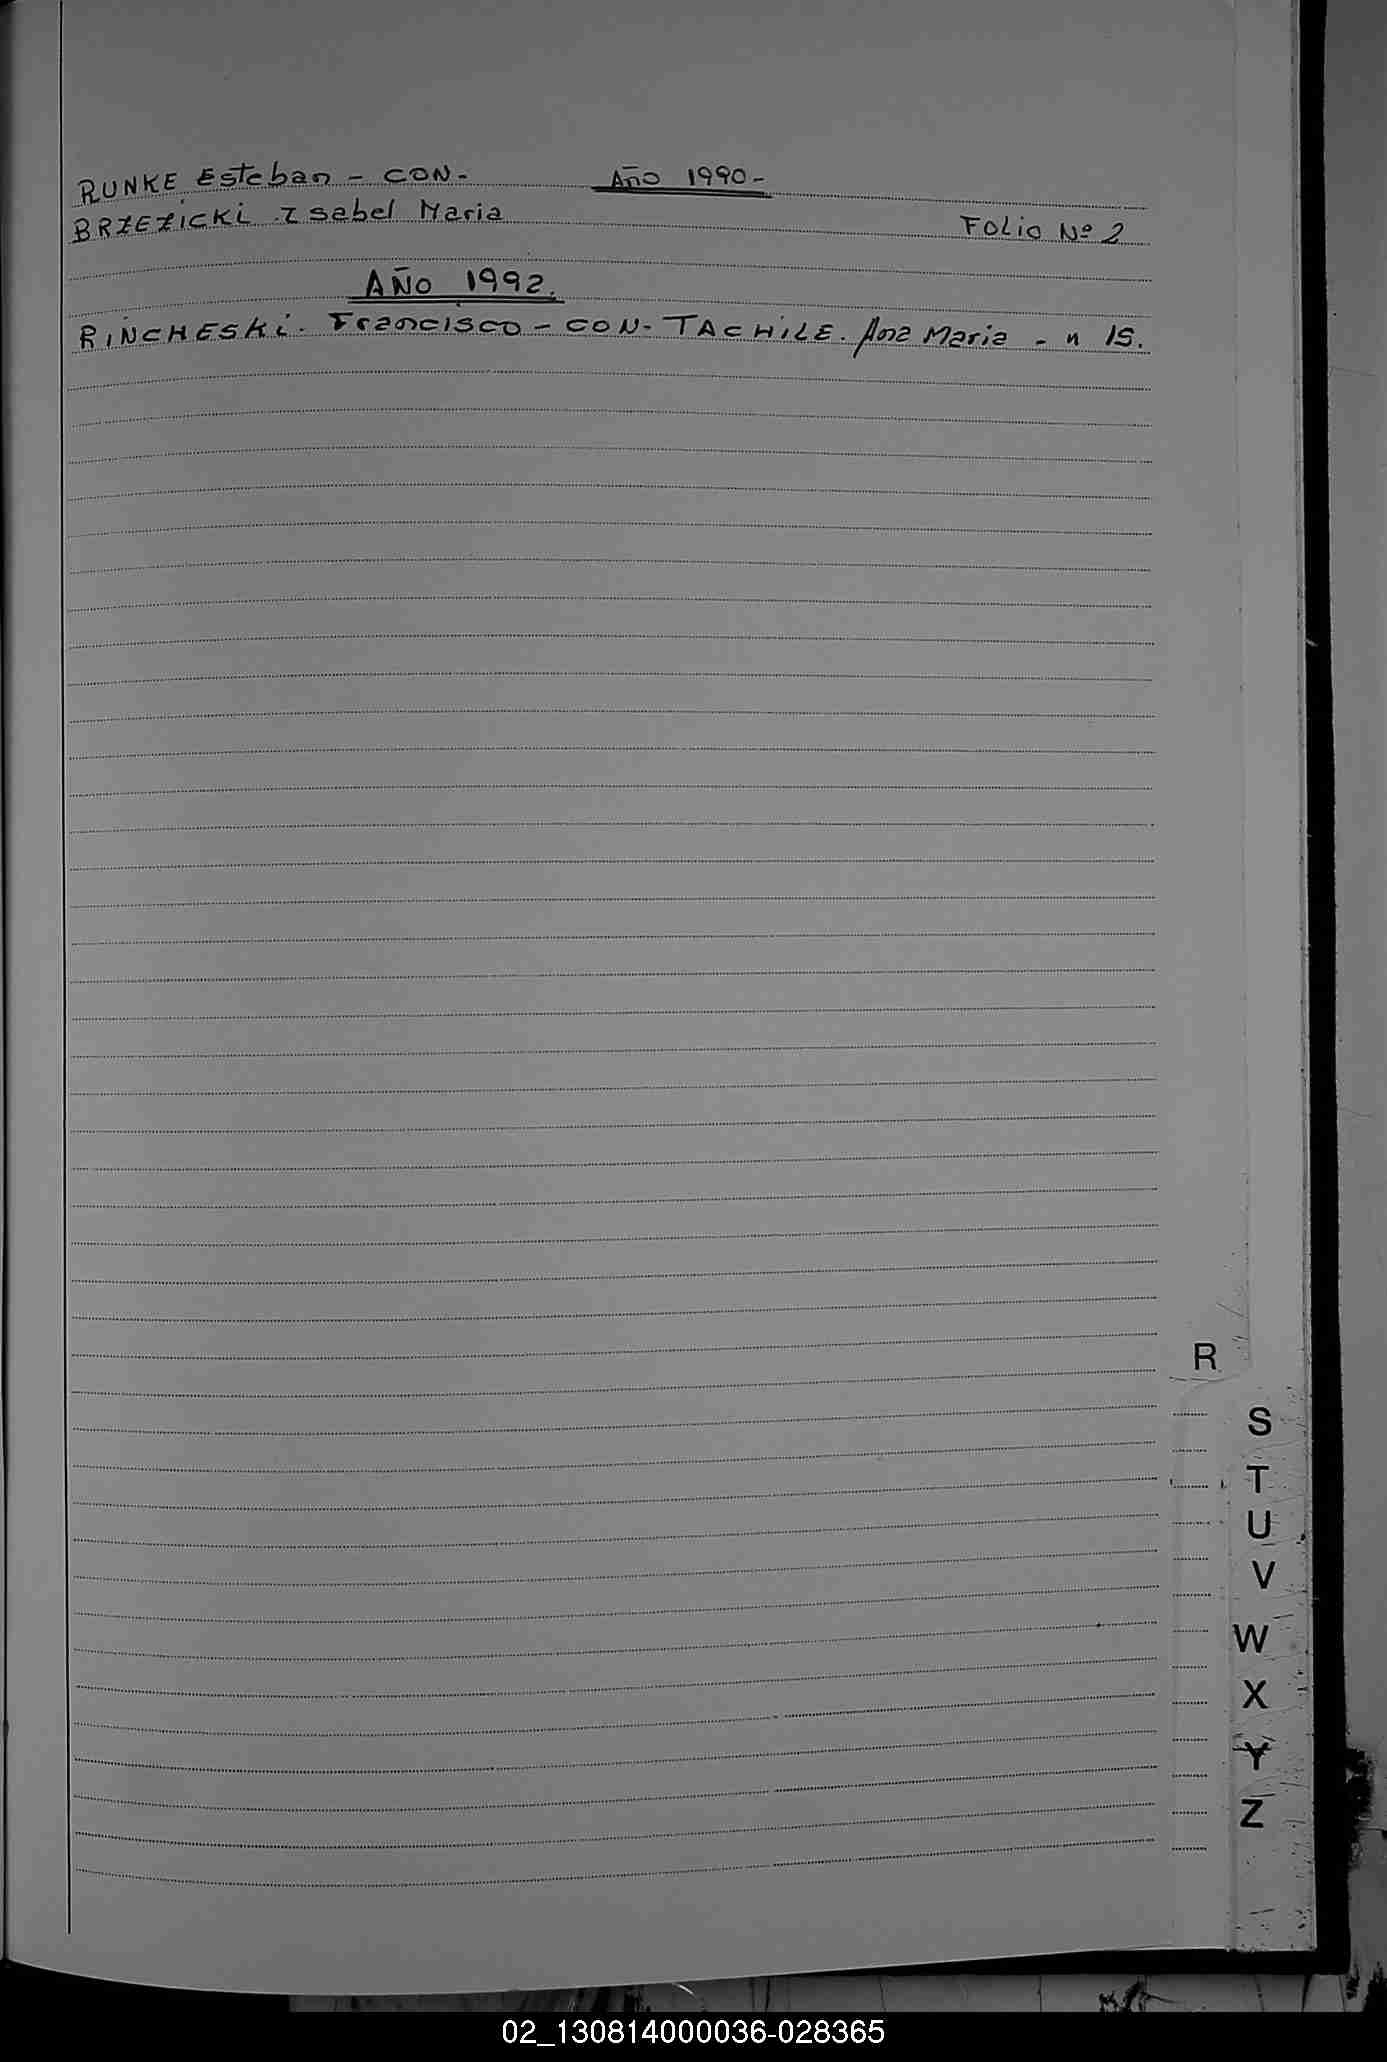 RUNKE Esteban - CON- Año 1990-
BRZEZICKI Isabel Maria Folio Nº 2
AÑO 1992.
RINCHESKI. Francisco - CON- TACHILE. Ana Maria - " 15.
R
S
T
U
V
W
X
Y
Z
02_130814000036-028365